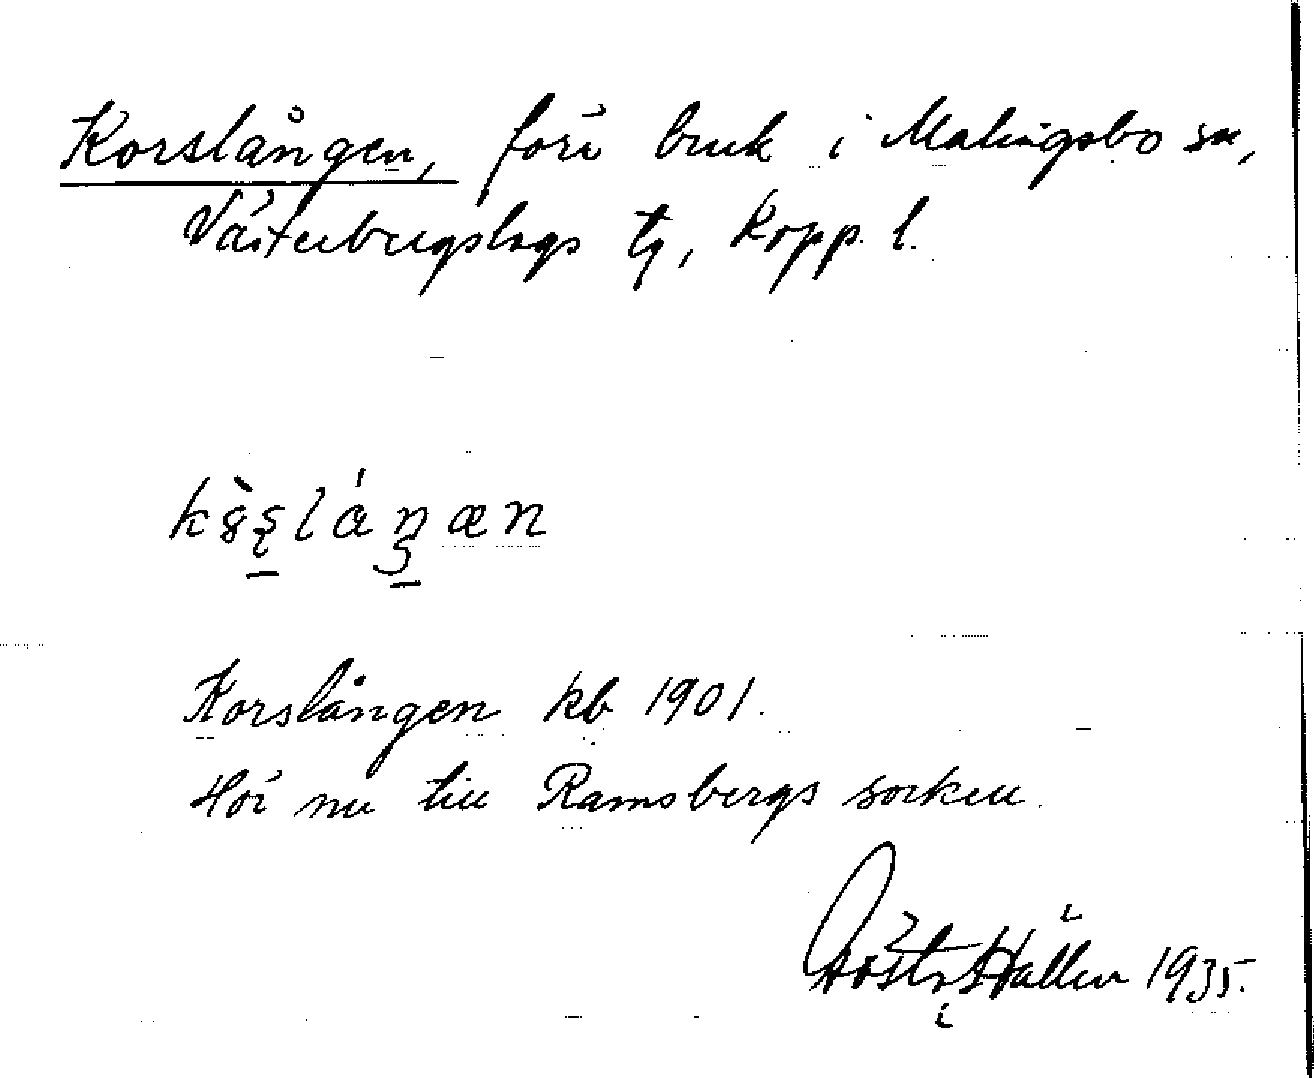 Korslången, förr bruk i Malingsbo sn,
Västerbergslags tg, Kopp. l.
Korslången kb 1901.
Hör nu till Ramsbergs socken.
1935.